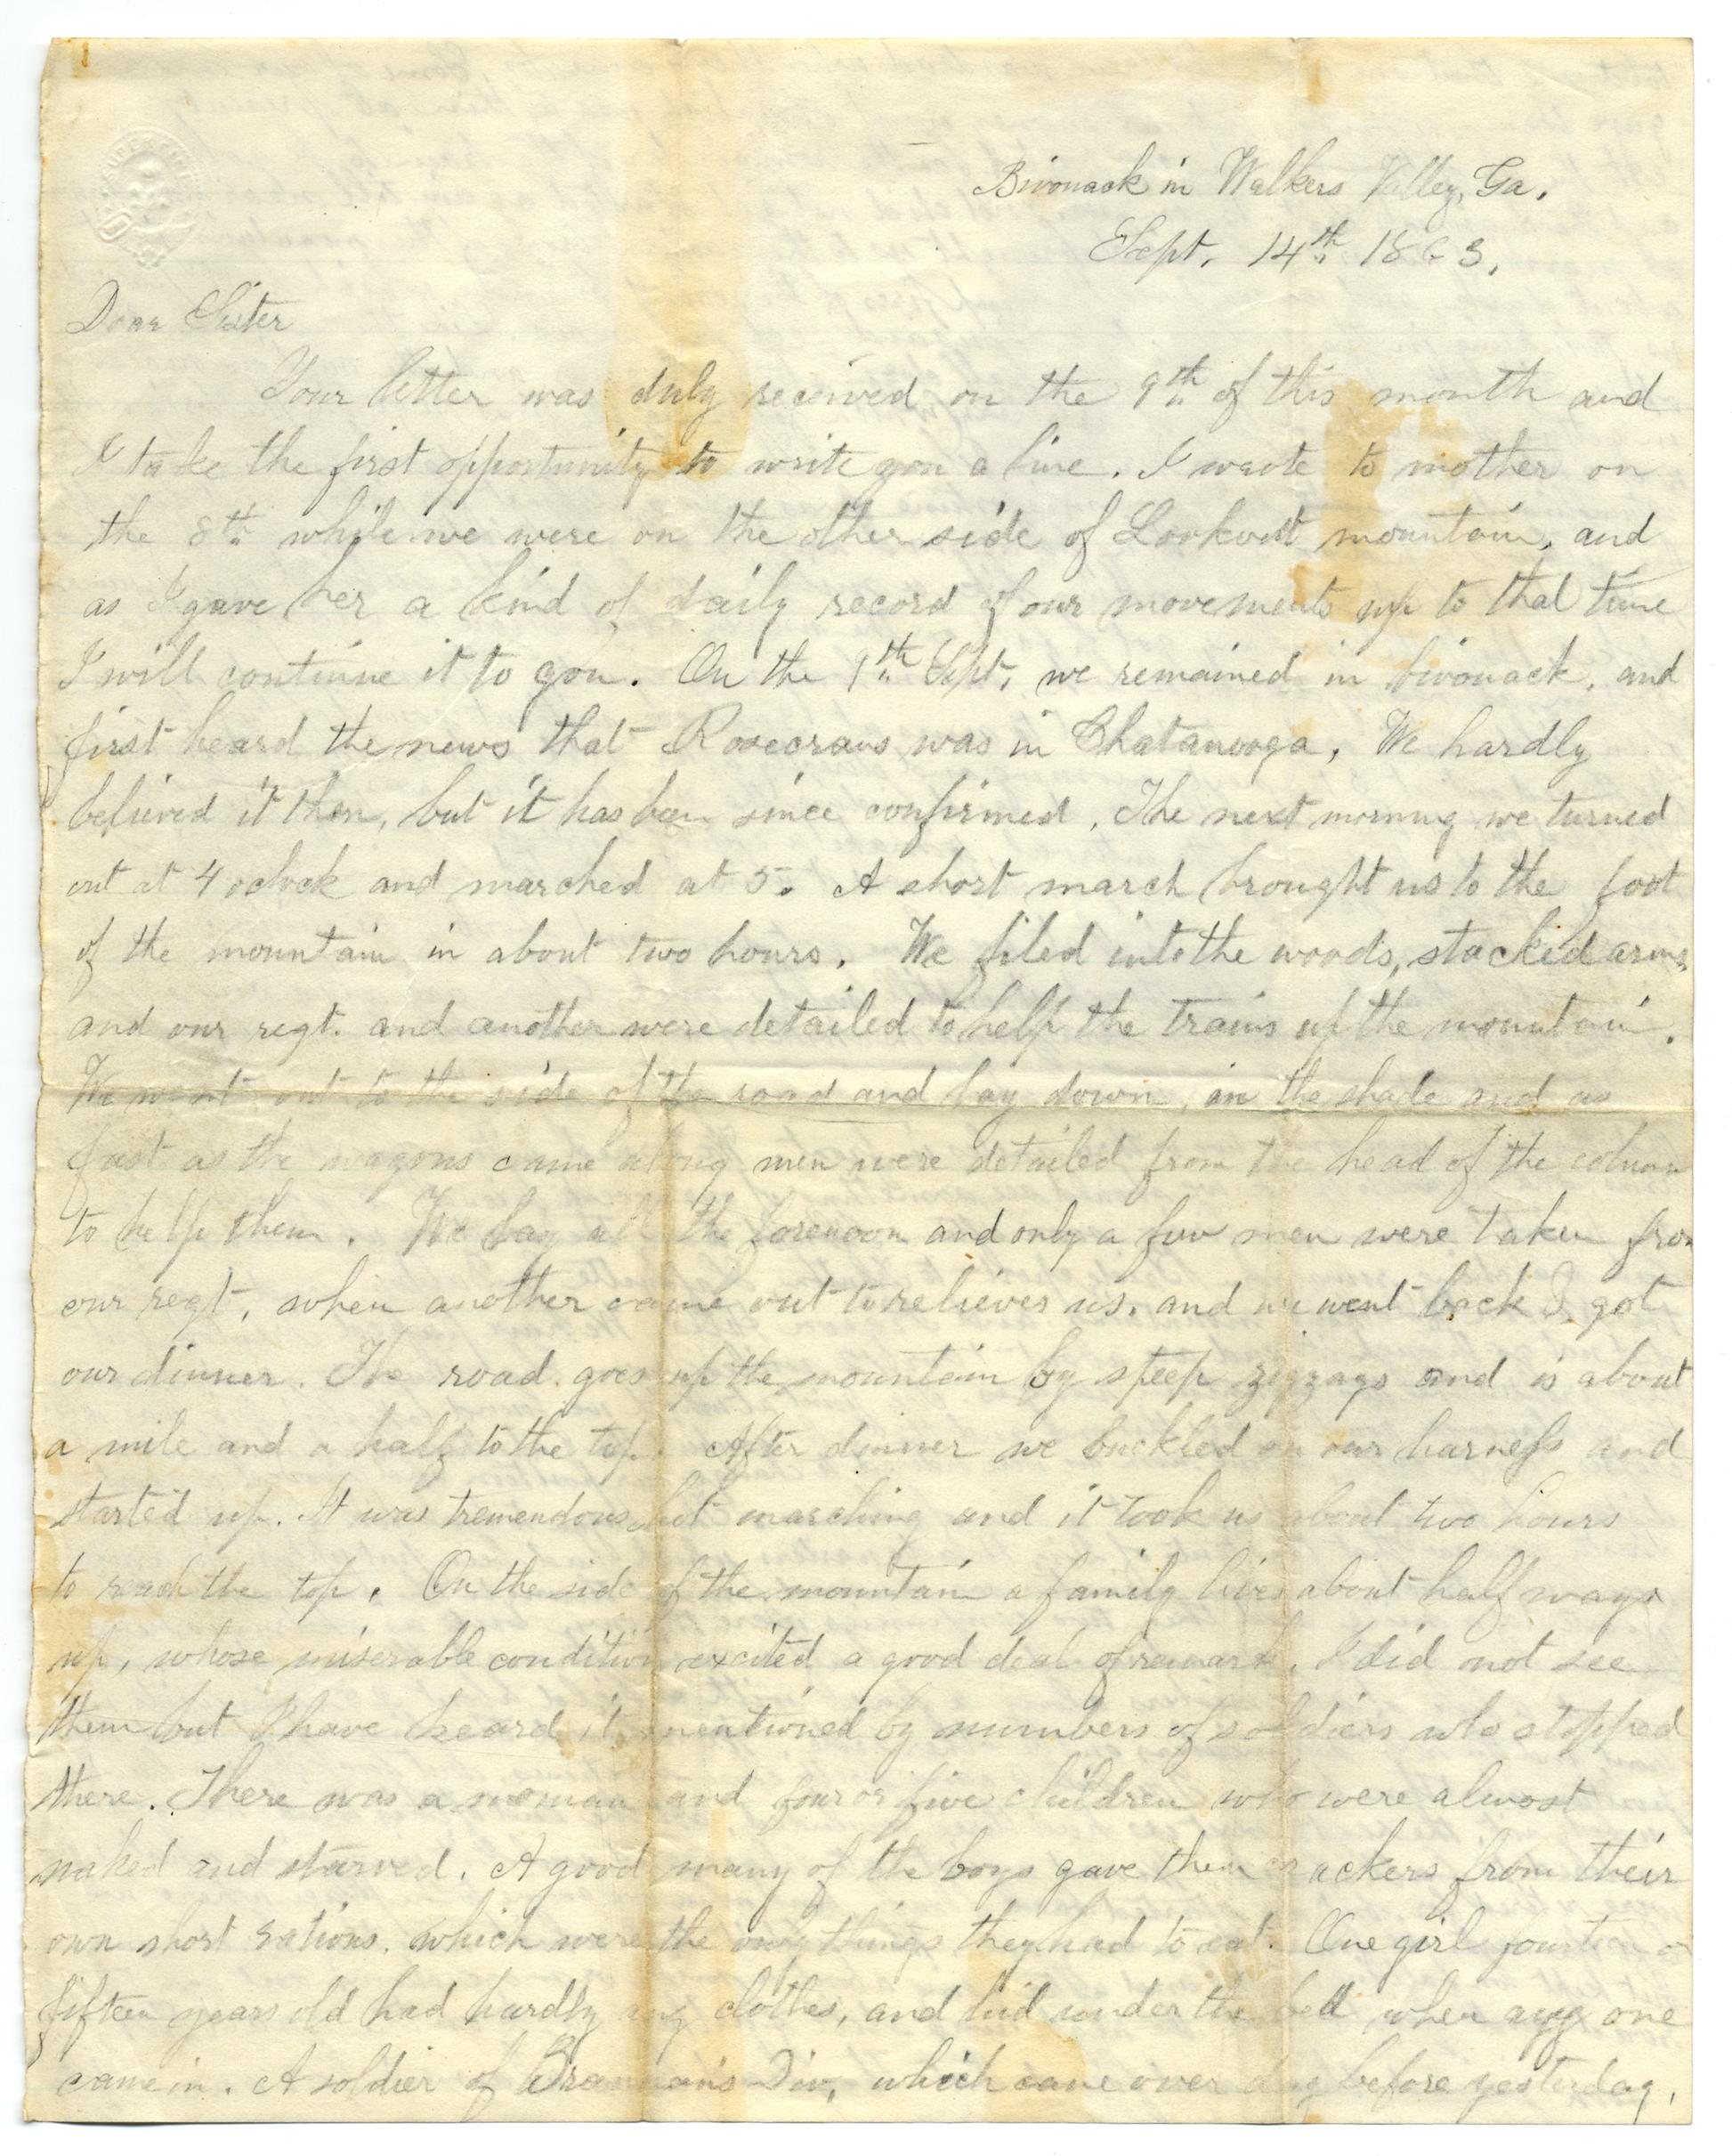 Bivouack in Walkers Valley, Ga.
Sept. 14th 1863.
Dear Sister
Your letter was duly received on the 9th of this month and
I take the first opportunity to write you a line. I wrote to mother on
the 8th while we were on the other side of Lookout mountain, and
as I gave her a kind of daily record of our movements up to that time
I will continue it to you. On the 9th Sept. we remained in bivouack, and
first heard the news that Rosecrans was in Chatanooga. We hardly
believed it then, but it has been since confirmed. The next morning we turned
out at 4 oclock and marched at 5. A short march brought us to the foot
of the mountain in about two hours. We filed into the woods, stacked arms,
and our regt. and another were detailed to help the trains up the mountain.
We went out to the side of the road and lay down in the shade and as
fast as the wagons came along men were detailed from the head of the column
to help them. We lay all the forenoon and only a few men were taken from
our regt, when another came out to relieves us, and we went back & got
our dinner. The road goes up the mountain by steep zigzags and is about
a mile and a half to the top. After dinner we buckled on our harness and
started up. It was tremendous hot marching and it took us about two hours
to reach the top. On the side of the mountain a family lives about half ways
up, whose miserable condition excited a good deal of remark. I did not see
them but I have heard it mentioned by numbers of soldiers who stopped
there. There was a woman and four or five children who were almost
naked and starved. A good many of the boys gave them crackers from their
own short rations, which were the only things they had to eat. One girl fourteen or
fifteen years old had hardly any clothes, and hid under the bed when any one
came in. A soldier of Brannan's Div, which came over day before yesterday,